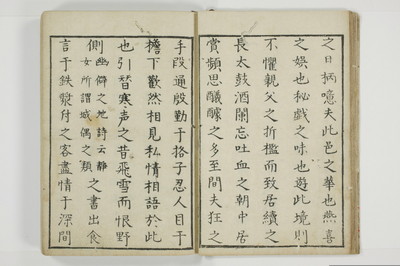 之日柄噫夫此邑之華也燕喜
之娯也秘戯之味也遊此境則
不懼親父之折檻而致居續之
長太鼓酒闌忘吐血之朝中居
賞頻思醵之多至間夫狂之
手段通殷勤于格子忍人目于
檐下歡然相見私情相語於此
也引替寒声之昔飛雪而恨野
側幽僻之地詩云静女所謂城偶之類之書出食
言于鉄漿付之客盡情于深間